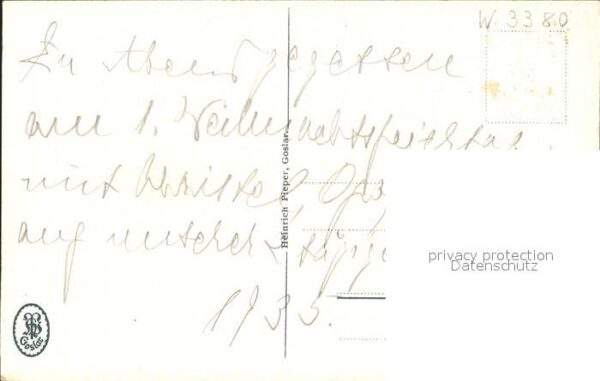 W 3380
Zu Abend gegessen
am 1. Weihnachtsfeiertag
mit
auf unserer
1935.
Heinrich Pieper, Goslar.
privacy protection
Datenschutz
Goslar